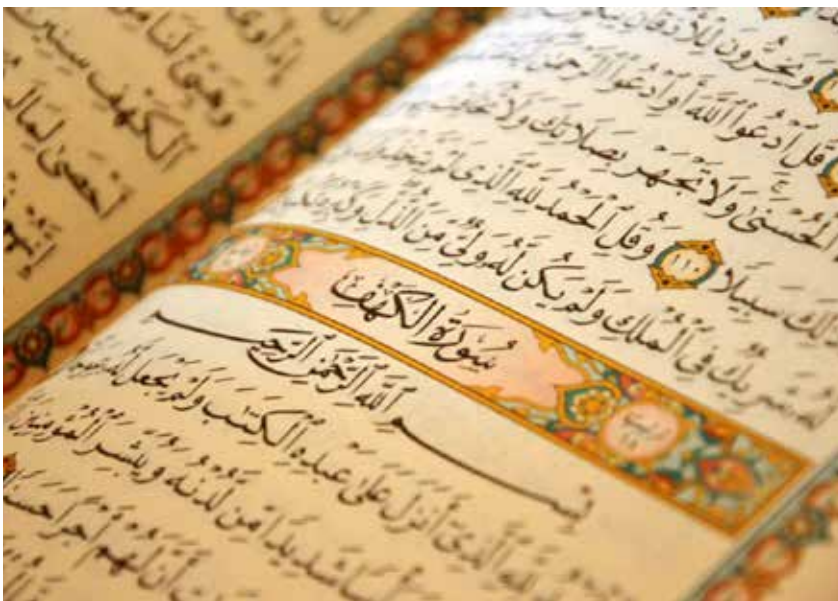 وَيَخِرُّونَ لِلْأَذْقَانِ
قُلِ ٱدْعُوا۟ ٱللَّهَ أَوِ ٱدْعُوا۟ ٱلرَّحْمَٰنَ
ٱلْحُسْنَىٰ وَلَا تَجْهَرْ بِصَلَاتِكَ وَلَا
ذَٰلِكَ سَبِيلًا ١١٠ وَقُلِ ٱلْحَمْدُ لِلَّهِ ٱلَّذِى لَمْ يَتَّخِذْ
لَّهُۥ شَرِيكٌ فِى ٱلْمُلْكِ وَلَمْ يَكُن لَّهُۥ وَلِىٌّ مِّنَ ٱلذُّلِّ وَكَبِّرْهُ
سُورَةُ ٱلْكَهْفِ
بِسْمِ ٱللَّهِ ٱلرَّحْمَٰنِ ٱلرَّحِيمِ
لِلَّهِ ٱلَّذِىٓ أَنزَلَ عَلَىٰ عَبْدِهِ ٱلْكِتَٰبَ وَلَمْ يَجْعَل لَّهُۥ
بَأْسًا شَدِيدًا مِّن لَّدُنْهُ وَيُبَشِّرَ ٱلْمُؤْمِنِينَ
أَنَّ لَهُمْ أَجْرًا حَسَنًا
إِذْ أَوَى
وَهَيِّئْ لَنَا مِنْ
ٱلْكَهْفِ سِنِينَ
أَحْصَىٰ لِمَا